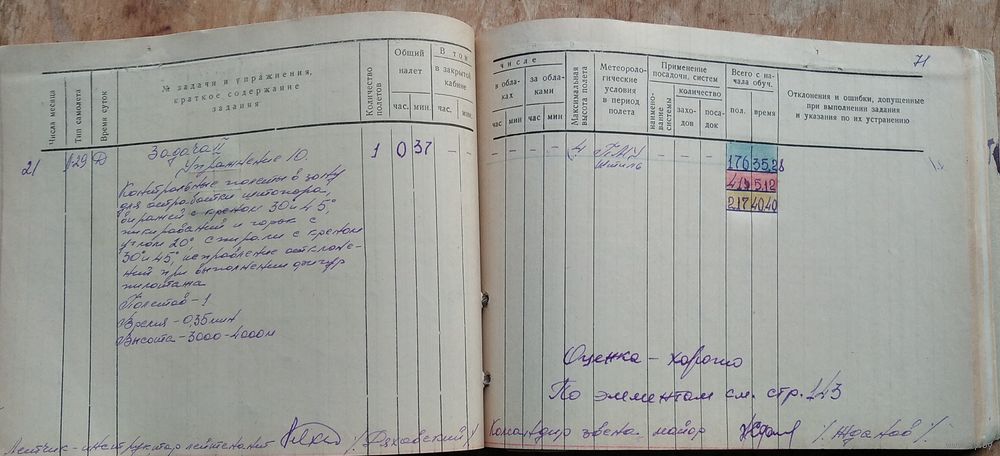 71
Числа месяца
Тип самолета
Время суток
№ задачи и упражнения,
краткое содержание
задания
Количество
полетов
Общий
налет
час. мин.
В том
в закрытой
кабине
час. мин.
числе
в обла-
ках
за обла-
ками
час мин час мин
Максимальная
высота полета
Метеороло-
гические
условия
в период
полета
Применение
посадочн. систем
наимено-
вание
системы
количество
захо-
дов
поса-
док
Всего с на-
чала обуч.
пол. время
Отклонения и ошибки, допущенные
при выполнении задания
и указания по их устранению
21 Л29 Д Задача II 1 0 37 – – – – – – 4 ПМУ
Упражнение 10. штиль
Контрольные полеты в зону
для отработки пилотажа,
виражей с креном 30° и 45°,
пикирований и горок с
углом 20°, спирали с креном
30° и 45°, исправление отклоне-
ний при выполнении фигур
пилотажа
Полетов – 1
Время – 0,35 мин
Высота – 3000 – 4000м
176 35,28
41 5 12
217 40 40
Оценка – хорошо
По элементам см. стр. 143
Летчик-инструктор лейтенант /Дяховский/
Командир звена майор /Жданов/